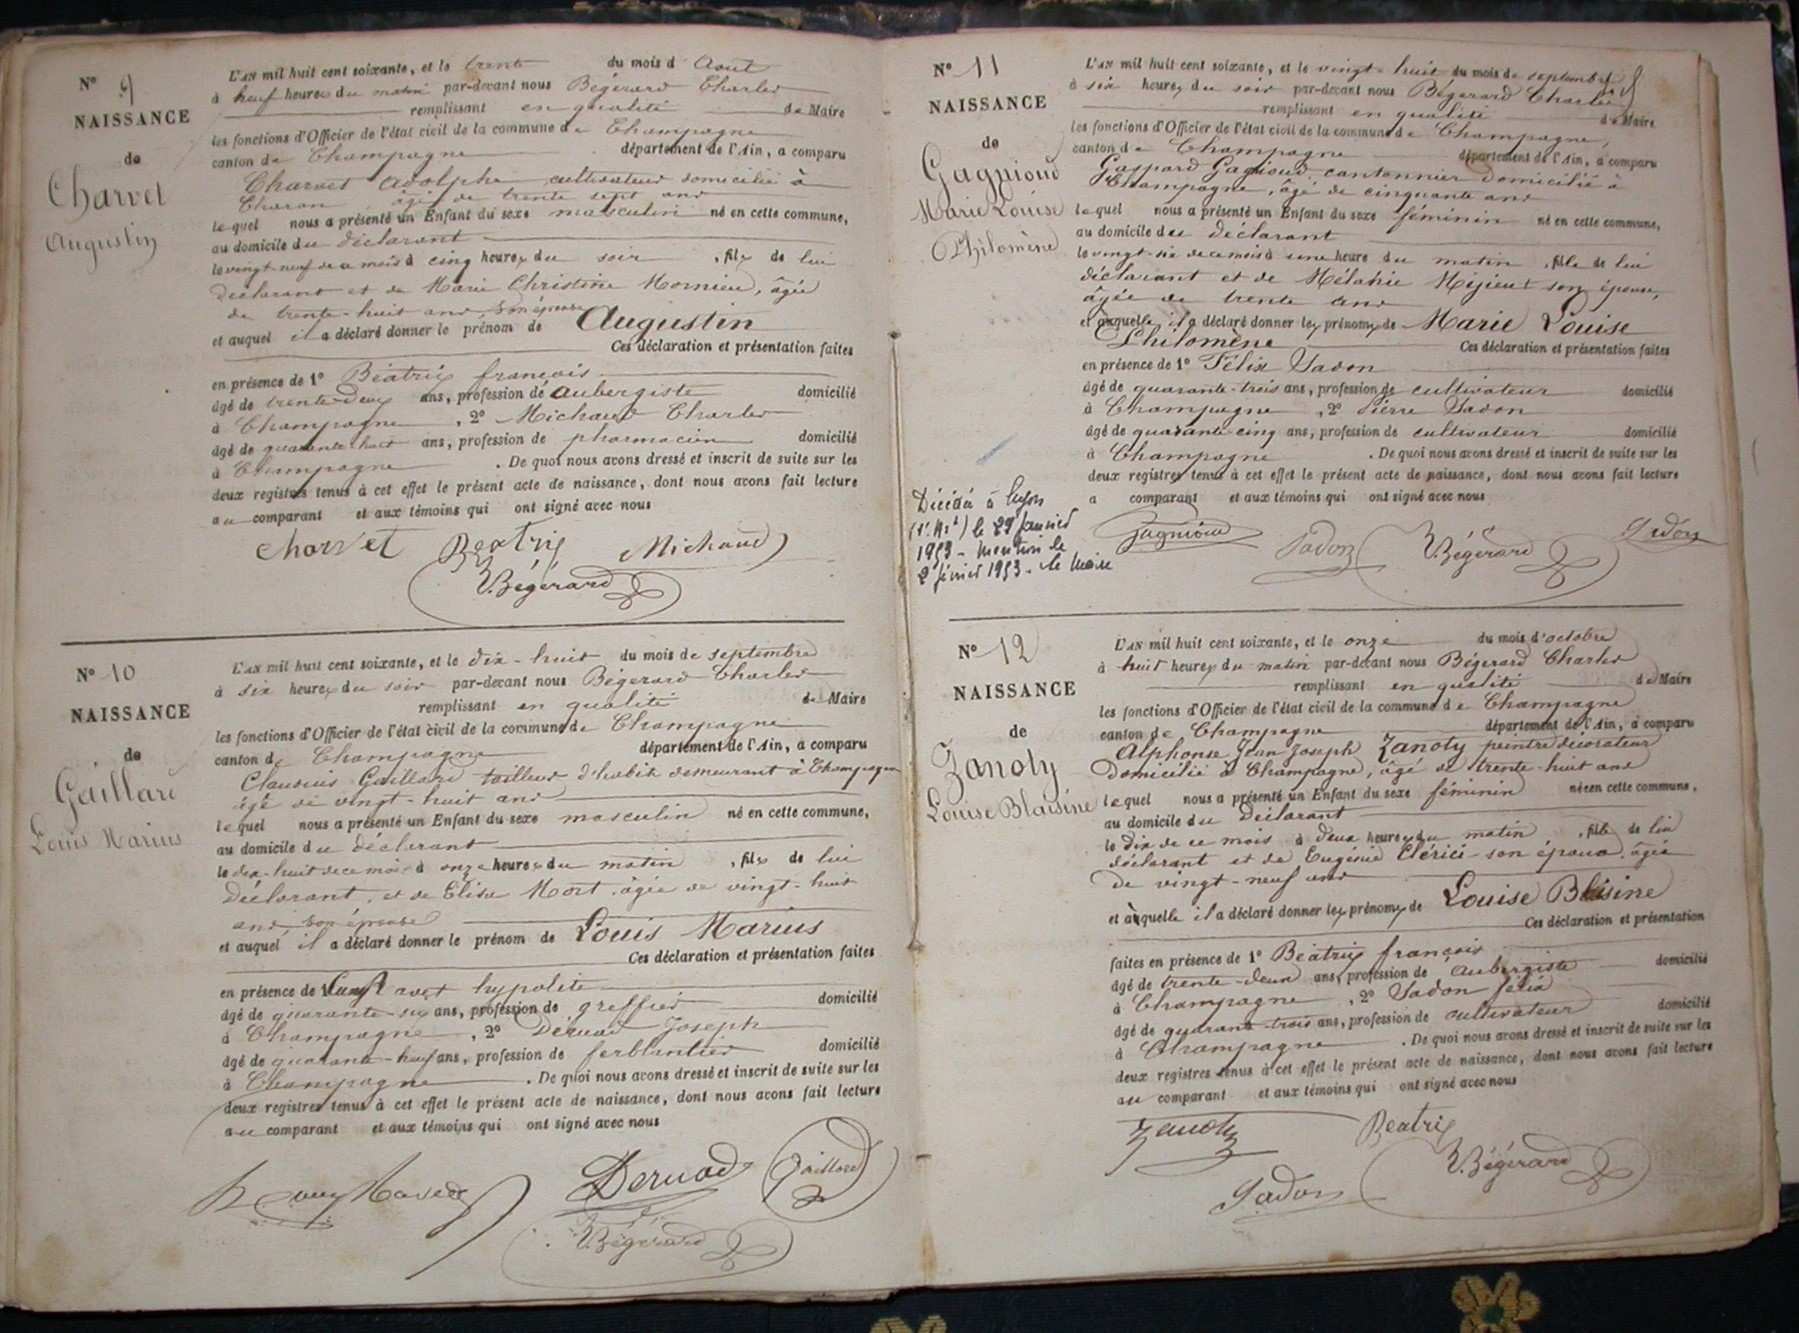 N° 9
NAISSANCE
de
Charvet
Augustin
L'AN mil huit cent soixante, et le trente du mois d'Aout
à neuf heures du matin par-devant nous Bégerard Charles
remplissant en qualité de Maire
les fonctions d'Officier de l'état civil de la commune de Champagne
canton de Champagne département de l'Ain, a comparu
Charvet Adolphe cultivateur domicilié à
Charon, âgé de trente sept ans
lequel nous a présenté un Enfant du sexe masculin né en cette commune,
au domicile du déclarant
le vingt-neuf de ce mois à cinq heures du soir, fils de lui
déclarant et de Marie Christine Mornieu, âgée
de trente-huit ans, son épouse
et auquel il a déclaré donner le prénom de Augustin
Ces déclaration et présentation faites
en présence de 1° Béatrix françois
âgé de trente-deux ans, profession de Aubergiste domicilié
à Champagne, 2° Michaud Charles
âgé de quarante huit ans, profession de pharmacien domicilié
à Champagne. De quoi nous avons dressé et inscrit de suite sur les
deux registres tenus à cet effet le présent acte de naissance, dont nous avons fait lecture
au comparant et aux témoins qui ont signé avec nous
Charvet Beatrix Michaud
Bégerard
N° 10
NAISSANCE
de
Gaillard
Louis Marius
L'AN mil huit cent soixante, et le dix-huit du mois de septembre
à six heures du soir par-devant nous Bégerard Charles
remplissant en qualité de Maire
les fonctions d'Officier de l'état civil de la commune de Champagne
canton de Champagne département de l'Ain, a comparu
Claudius Gaillard tailleur d'habits demeurant à Champagne
âgé de vingt-huit ans
lequel nous a présenté un Enfant du sexe masculin né en cette commune,
au domicile du déclarant
le dix-huit de ce mois à onze heures du matin, fils de lui
déclarant, et de Elisa Mort âgée de vingt-huit
ans, son épouse
et auquel il a déclaré donner le prénom de Louis Marius
Ces déclaration et présentation faites
en présence de hypolite
âgé de quarante-six ans, profession de greffier domicilié
à Champagne, 2° Deruad Joseph
âgé de quarante-huit ans, profession de ferblantier domicilié
à Champagne. De quoi nous avons dressé et inscrit de suite sur les
deux registres tenus à cet effet le présent acte de naissance, dont nous avons fait lecture
au comparant et aux témoins qui ont signé avec nous
Deruad Gaillard
Bégerard
N° 11
NAISSANCE
de
Gagnioud
Marie Louise
Philomène
L'AN mil huit cent soixante, et le vingt-huit du mois de septembre
à six heures du soir par-devant nous Bégerard Charles
remplissant en qualité de Maire
les fonctions d'Officier de l'état civil de la commune de Champagne,
canton de Champagne département de l'Ain, a comparu
Gaspard Gagnioud, cantonnier domicilié à
Champagne, âgé de cinquante ans
lequel nous a présenté un Enfant du sexe féminin né en cette commune,
au domicile du déclarant
le vingt-six de ce mois à une heure du matin, fille de lui
déclarant et de Mélanie Mijieux son épouse,
âgée de trente ans
et à laquelle il a déclaré donner les prénoms de Marie Louise
Philomène Ces déclaration et présentation faites
en présence de 1° Félix Jadon
âgé de quarante-trois ans, profession de cultivateur domicilié
à Champagne, 2° Pierre Jadon
âgé de quarante-cinq ans, profession de cultivateur domicilié
à Champagne. De quoi nous avons dressé et inscrit de suite sur les
deux registres tenus à cet effet le présent acte de naissance, dont nous avons fait lecture
a comparant et aux témoins qui ont signé avec nous
Décédée à Lyon
le 29 Janvier
1953 - mention le
2 février 1953 - le Maire
Gagnioud Jadon Bégerard Jadon
N° 12
NAISSANCE
de
Zanoty
Louise Blaisine
L'AN mil huit cent soixante, et le onze du mois d'octobre
à huit heures du matin par-devant nous Bégerard Charles
remplissant en qualité de Maire
les fonctions d'Officier de l'état civil de la commune de Champagne
canton de Champagne département de l'Ain, a comparu
Alphonse Jean Joseph Zanoty peintre décorateur
domicilié à Champagne, âgé de trente-huit ans
lequel nous a présenté un Enfant du sexe féminin né en cette commune,
au domicile du déclarant
le dix de ce mois à deux heures du matin, fille de lui
déclarant et de Eugénie Clérici son épouse âgée
de vingt-neuf ans
et à laquelle il a déclaré donner les prénoms de Louise Blaisine
Ces déclaration et présentation
faites en présence de 1° Béatrix françois
âgé de trente-deux ans, profession de Aubergiste domicilié
à Champagne, 2° Jadon félix
âgé de quarante-trois ans, profession de cultivateur domicilié
à Champagne. De quoi nous avons dressé et inscrit de suite sur les
deux registres tenus à cet effet le présent acte de naissance, dont nous avons fait lecture
au comparant et aux témoins qui ont signé avec nous
Zanoty Beatrix
Jadon Bégerard